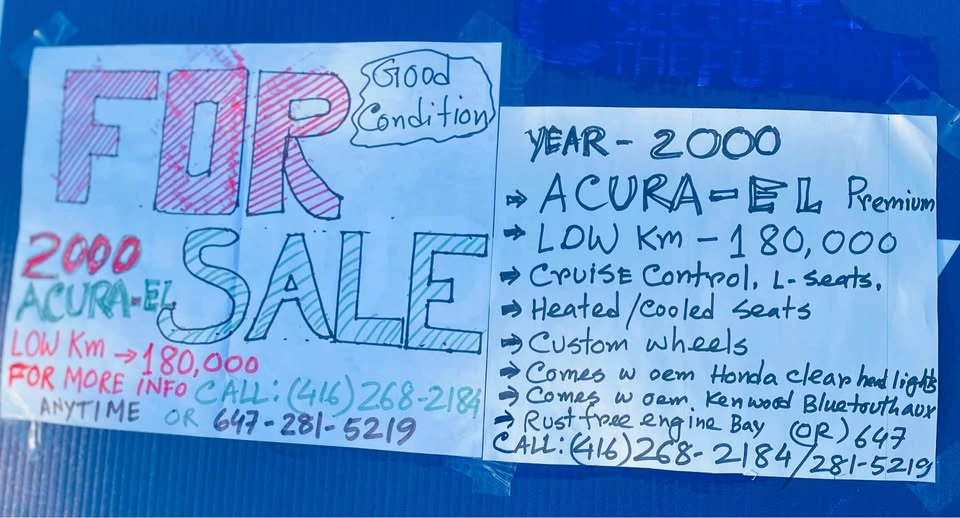 FOR
Good
Condition
SALE
2000
ACURA-EL
LOW Km → 180,000
FOR MORE INFO CALL: (416) 268-2184
ANYTIME OR 647-281-5219
YEAR - 2000
⇒ ACURA-EL Premium
⇒ LOW Km - 180,000
⇒ Cruise Control, L-seats,
⇒ Heated/Cooled seats
⇒ Custom wheels
⇒ Comes w oem Honda clear head lights
⇒ Comes w oem. Kenwood Bluetouth aux
⇒ Rust free engine Bay (OR) 647
CALL: (416) 268-2184/281-5219